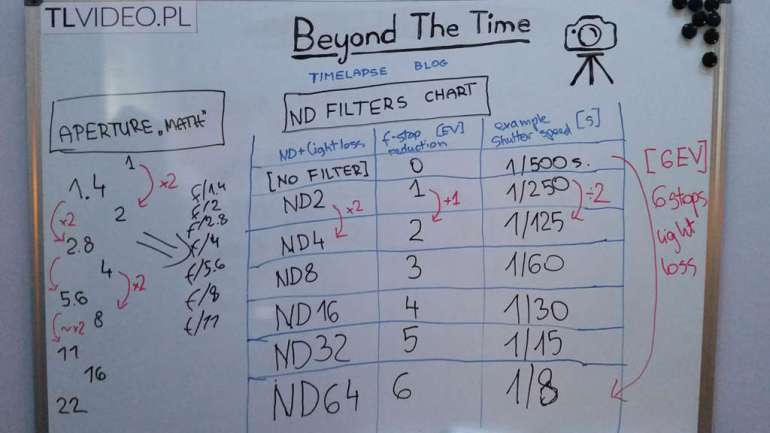 TLVIDEO.PL
Beyond The Time
TIMELAPSE BLOG
ND FILTERS CHART
APERTURE „MATH"
1
1.4
×2
2
×2
2.8
4
×2
5.6
8
~×2
11
16
22
f/1.4
f/2
f/2.8
f/4
f/5.6
f/8
f/11
ND+lightloss f-stop [EV] reduction example shutter speed [s]
[NO FILTER] 0 1/500 s.
ND2 1 1/250
×2 +1 ÷2
ND4 2 1/125
ND8 3 1/60
ND16 4 1/30
ND32 5 1/15
ND64 6 1/8
[6EV]
6 stops
light
loss